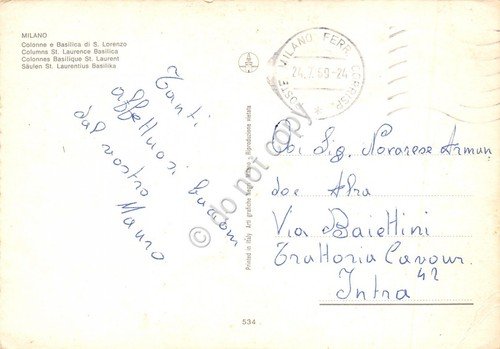 MILANO
Colonne e Basilica di S. Lorenzo
Columns St. Laurence Basilica
Colonnes Basilique St. Laurent
Säulen St. Laurentius Basilika
Tanti
affettuosi bacioni
dal vostro
Mauro
Printed in Italy Arti grafiche Milano - Riproduzione vietata
MILANO FERR. CORRISP. POSTE
24.7.69-24
Sig. Novarese Arman
doe Alra
Via Baiettini
Trattoria Cavour
42
Intra
534
© do not copy